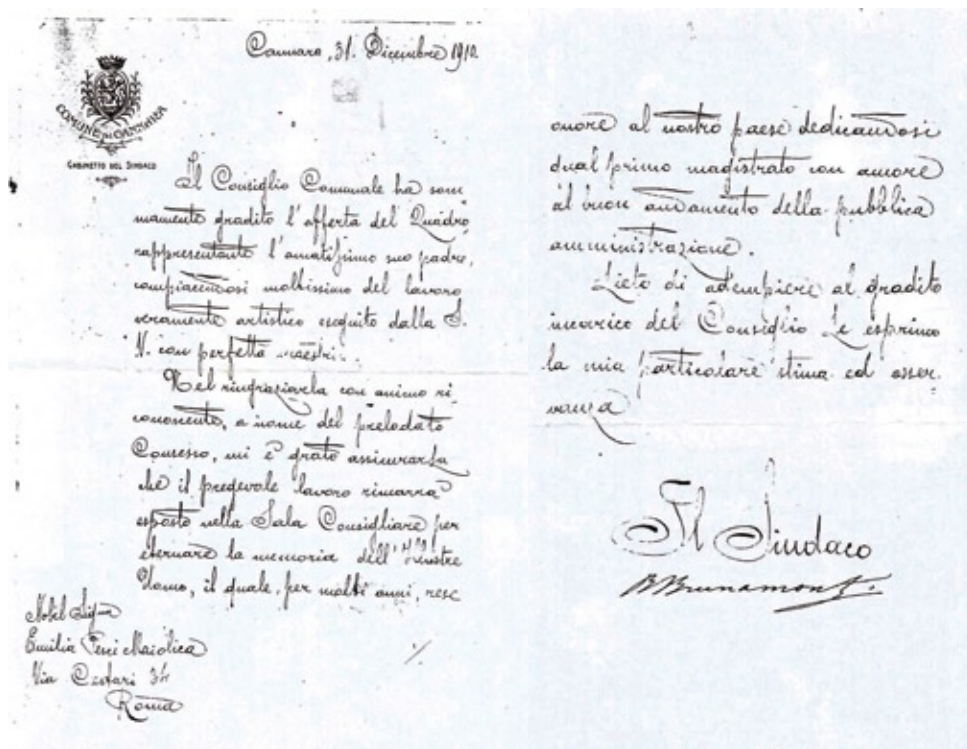 Cannara, 31. Dicembre 1910
COMUNE DI CANNARA
GABINETTO DEL SINDACO
Il Consiglio Comunale ha som
mamente gradito l'offerta del Quadro,
rappresentante l'amatissimo suo padre,
compiacendosi moltissimo del lavoro
veramente artistico eseguito dalla S.
V. con perfetta maestri
Nel ringraziarla con animo ri
conoscente, a nome del prelodato
Consesso, mi è grato assicurarla
che il pregevole lavoro rimarrà
esposto nella Sala Consigliare per
eternare la memoria dell'Illustre
Uomo, il quale, per molti anni, rese
Nobil Sig.ra
Emilia Maiolica
Via Cestari 34
Roma
onore al nostro paese dedicandosi
qual primo magistrato con amore
al buon andamento della pubblica
amministrazione.
Lieto di adempiere al gradito
incarico del Consiglio Le esprimo
la mia particolare stima ed osser.
vanza
Il Sindaco
B Brunamonti